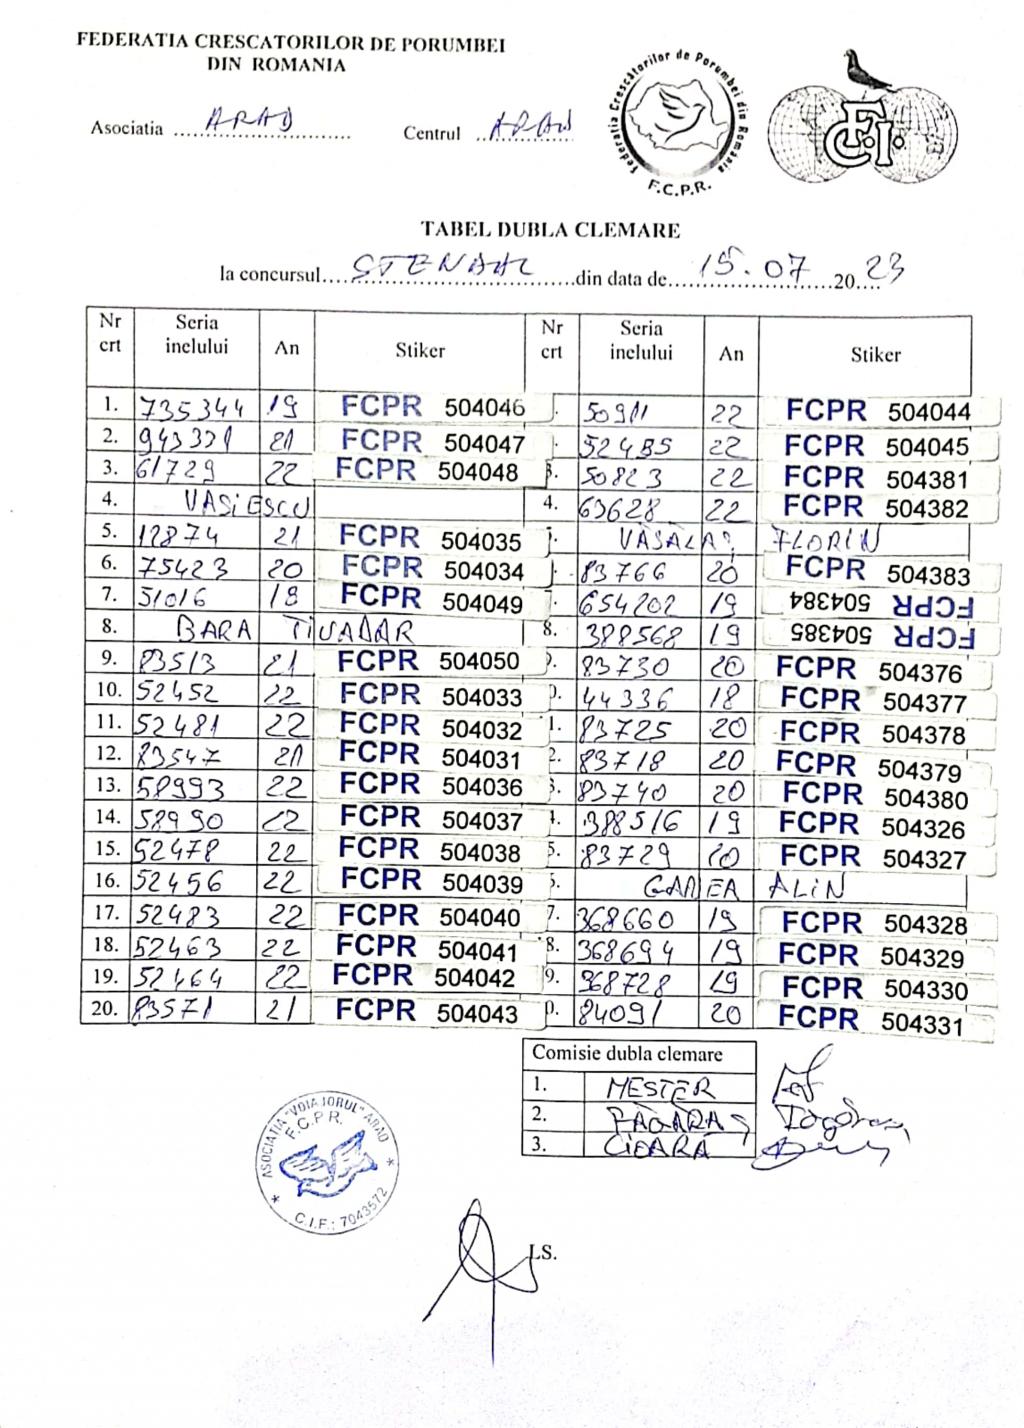 FEDERATIA CRESCATORILOR DE PORUMBEI
DIN ROMANIA
Asociatia ARAD Centrul ARAD
Federatia Crescătorilor de Porumbei din România
F.C.P.R.
FCI
TABEL DUBLA CLEMARE
la concursul STENDAL din data de 15.07 2023
Nr crt Seria inelului An Stiker Nr crt Seria inelului An Stiker
1. 735344 19 FCPR 504046 . 50911 22 FCPR 504044
2. 943321 21 FCPR 504047 . 52485 22 FCPR 504045
3. 61729 22 FCPR 504048 3. 50823 22 FCPR 504381
4. VASiESCU 4. 63628 22 FCPR 504382
5. 12874 21 FCPR 504035 . VĂSĂLAȘ FLORIN
6. 75423 20 FCPR 504034 . 83766 20 FCPR 504383
7. 51016 18 FCPR 504049 . 654202 19 FCPR 504384
8. BARA TIVADAR 8. 388568 19 FCPR 504385
9. 83513 21 FCPR 504050 9. 83730 20 FCPR 504376
10. 52452 22 FCPR 504033 0. 44336 18 FCPR 504377
11. 52481 22 FCPR 504032 1. 83725 20 FCPR 504378
12. 83547 21 FCPR 504031 2. 83718 20 FCPR 504379
13. 58993 22 FCPR 504036 3. 83740 20 FCPR 504380
14. 58990 22 FCPR 504037 4. 388516 19 FCPR 504326
15. 52478 22 FCPR 504038 5. 83729 20 FCPR 504327
16. 52456 22 FCPR 504039 6. GADEA ALIN
17. 52483 22 FCPR 504040 7. 368660 19 FCPR 504328
18. 52463 22 FCPR 504041 8. 368694 19 FCPR 504329
19. 52464 22 FCPR 504042 9. 368728 19 FCPR 504330
20. 83571 21 FCPR 504043 0. 84091 20 FCPR 504331
Comisie dubla clemare
1. MESTER
2. FĂGĂRAȘ
3. CIOARĂ
ASOCIATIA "VOIAJORUL" ARAD
F.C.P.R.
C.I.F.: 7043572
LS.